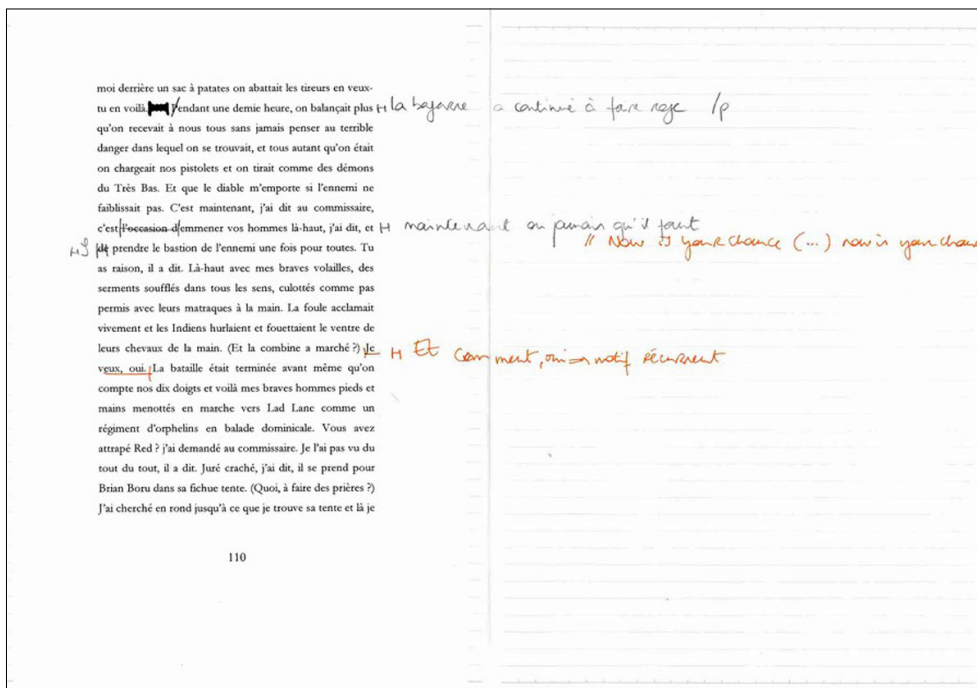 moi derrière un sac à patates on abattait les tireurs en veux-
tu en voilà. Pendant une demie heure, on balançait plus H la bagarre a continué à faire rage /p
qu'on recevait à nous tous sans jamais penser au terrible
danger dans lequel on se trouvait, et tous autant qu'on était
on chargeait nos pistolets et on tirait comme des démons
du Très Bas. Et que le diable m'emporte si l'ennemi ne
faiblissait pas. C'est maintenant, j'ai dit au commissaire,
c'est l'occasion d'emmener vos hommes là-haut, j'ai dit, et H maintenant ou jamais qu'il faut
// Now is your chance (...) now is your chan
prendre le bastion de l'ennemi une fois pour toutes. Tu
as raison, il a dit. Là-haut avec mes braves volailles, des
serments soufflés dans tous les sens, culottés comme pas
permis avec leurs matraques à la main. La foule acclamait
vivement et les Indiens hurlaient et fouettaient le ventre de
leurs chevaux de la main. (Et la combine a marché ?) Je H Et comment, oui → motif récurrent
veux, oui. La bataille était terminée avant même qu'on
compte nos dix doigts et voilà mes braves hommes pieds et
mains menottés en marche vers Lad Lane comme un
régiment d'orphelins en balade dominicale. Vous avez
attrapé Red ? j'ai demandé au commissaire. Je l'ai pas vu du
tout du tout, il a dit. Juré craché, j'ai dit, il se prend pour
Brian Boru dans sa fichue tente. (Quoi, à faire des prières ?)
J'ai cherché en rond jusqu'à ce que je trouve sa tente et là je
110